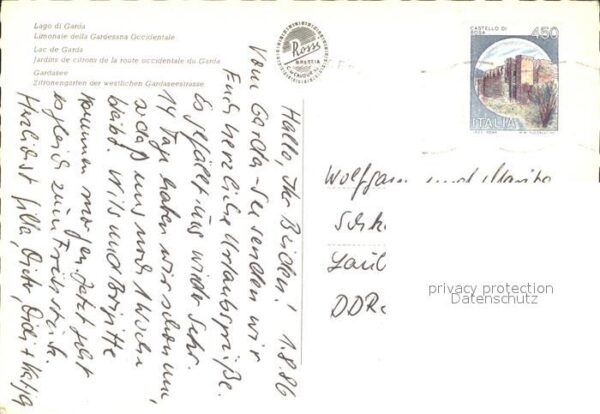 Lago di Garda
Limonaie della Gardesana Occidentale
Lac de Garda
Jardins de citrons de la route occidentale du Garda
Gardasee
Zitronengarten der westlichen Gardaseestrasse
Rossi
BRESCIA
450
CASTELLO DI
ROSA
ITALIA
Hallo, Ihr Beiden! 1.8.86
Vom Garda-See senden wir
Euch herzliche Urlaubsgrüße.
Es gefällt uns wieder sehr.
14 Tage haben wir schon um,
sodaß uns noch 1 Woche
bleibt. Nils und Brigitte
kommen morgen. Jetzt geht
es gleich zum Frühstück.
Herzlichst Dieter, Didi +
Wolfgang und
Sch
Laub
DDR
privacy protection
Datenschutz